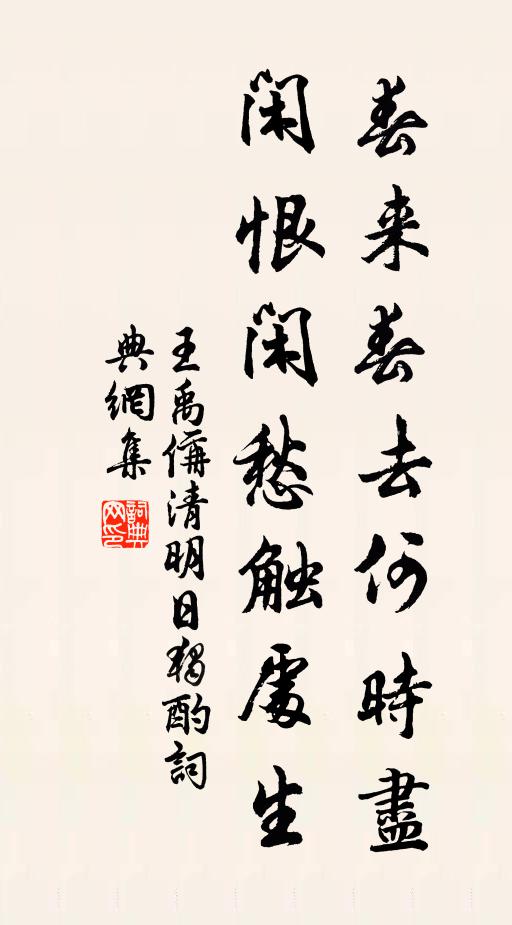 春来春去何時盡
闲恨闲愁触處生
王禹偁清明日獨酌詞
典網集
詞典
网印